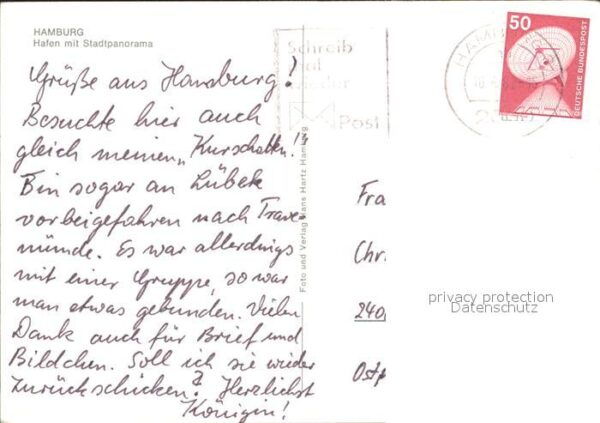 HAMBURG
Hafen mit Stadtpanorama
Grüße aus Hamburg!
Besuchte hier auch
gleich meinen „Kurschatten."
Bin sogar an Lübek
vorbeigefahren nach Trave-
münde. Es war allerdings
mit einer Gruppe, so war
man etwas gebunden. Vielen
Dank auch für Brief und
Bildchen. Soll ich sie wieder
zurückschicken? Herzlichst
Königin!
Foto und Verlag Hans Hartz Hamburg
Schreib
mal
wieder
Post
HAMBURG
50
DEUTSCHE BUNDESPOST
Fra
Chr.
240
Ostp
privacy protection
Datenschutz